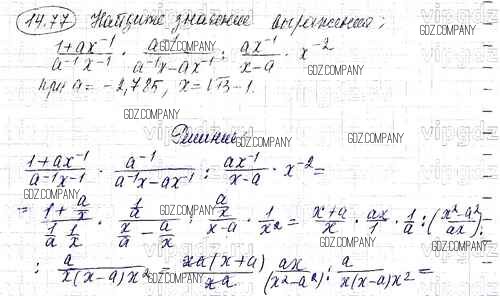 14.77 Найдите значение выражения;
\frac{1+ax^{-1}}{a^{-1}x^{-1}} \cdot \frac{a^{-1}}{a^{-1}x-ax^{-1}} : \frac{ax^{-1}}{x-a} \cdot x^{-2}
при a = -2,785, x = \sqrt{13} - 1.
Решение
\frac{1+ax^{-1}}{a^{-1}x^{-1}} \cdot \frac{a^{-1}}{a^{-1}x-ax^{-1}} : \frac{ax^{-1}}{x-a} \cdot x^{-2} =
= \frac{1+\frac{a}{x}}{\frac{1}{a}\frac{1}{x}} \cdot \frac{\frac{1}{a}}{\frac{x}{a}-\frac{a}{x}} : \frac{\frac{a}{x}}{x-a} \cdot \frac{1}{x^2} = \frac{x+a}{x} \cdot \frac{ax}{1} \cdot \frac{1}{a} : \left(\frac{x^2-a^2}{ax}\right) :
: \frac{a}{x(x-a)x^2} = \frac{xa(x+a)}{xa} \cdot \frac{ax}{(x^2-a^2)} : \frac{a}{x(x-a)x^2} =
GDZ.COMPANY
GDZ.COMPANY
GDZ.COMPANY
GDZ.COMPANY
GDZ.COMPANY
GDZ.COMPANY
GDZ.COMPANY
GDZ.COMPANY
GDZ.COMPANY
GDZ.COMPANY